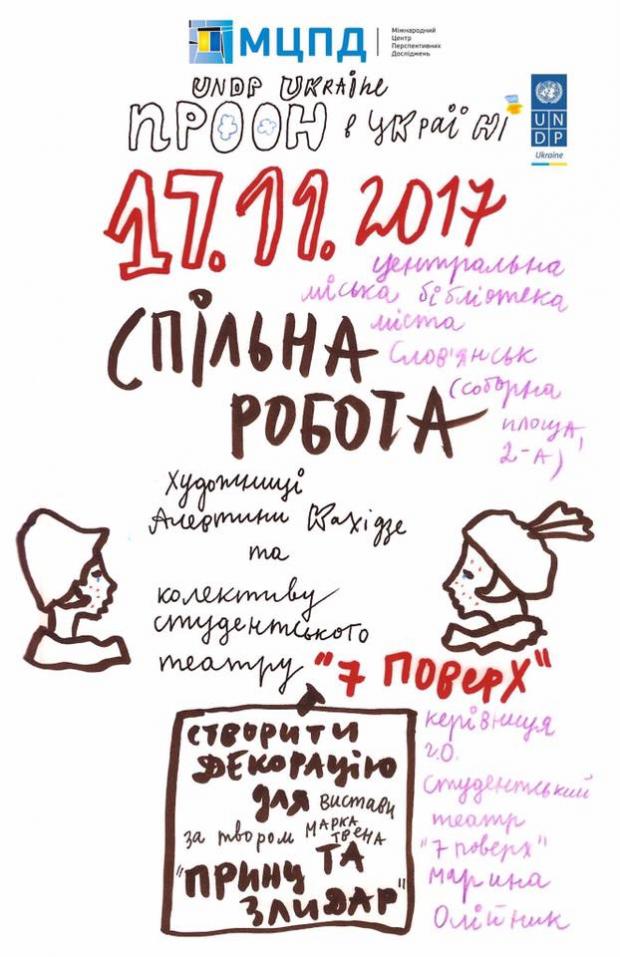 МЦПД
Міжнародний
Центр
Перспективних
Досліджень
UNDP UKRAINE
ПРООН в УКРАЇНІ
U N
D P
Ukraine
17.11.2017
центральна
міська бібліотека
міста
Слов'янськ
(соборна
площа,
2-А)
СПІЛЬНА
РОБОТА
Художниці
Алевтини Кахідзе
та
колективу
студентського
театру "7 ПОВЕРХ"
СТВОРИТИ
ДЕКОРАЦІЮ
ДЛЯ вистави
за твором МАРКА
ТВЕНА
"ПРИНЦ ТА
ЗЛИДАР"
керівниця
г.о.
студентський
театр
"7 поверх"
Марина
Олійник